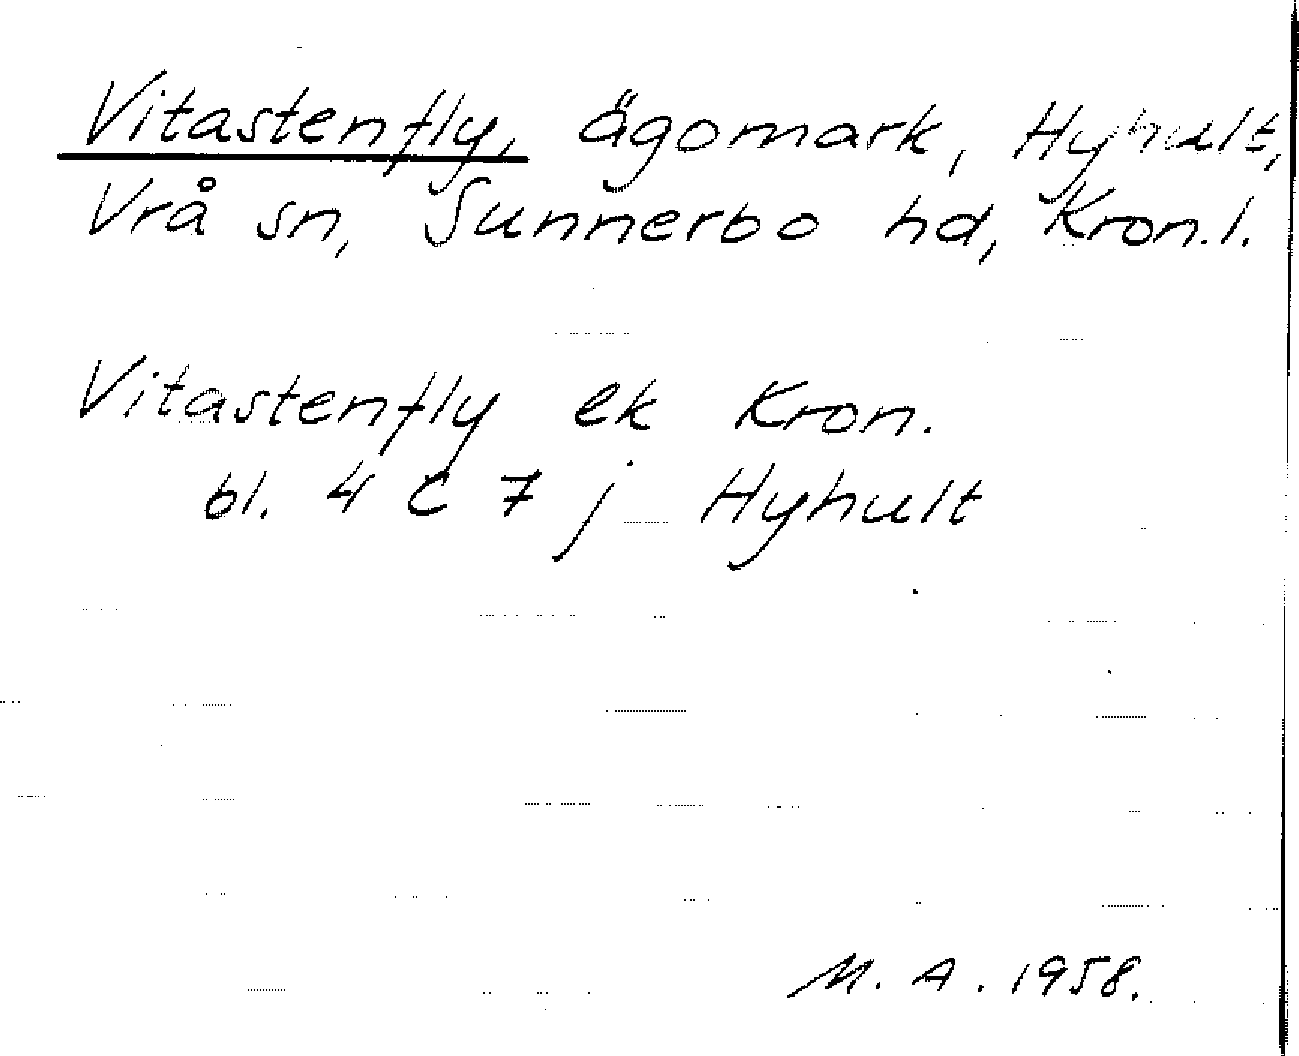 Vitastenfly, ägomark, Hyhult,
Vrå sn, Sunnerbo hd, Kron.l.
Vitastenfly ek Kron.
bl. 4 C 7 j Hyhult
M. A. 1958.